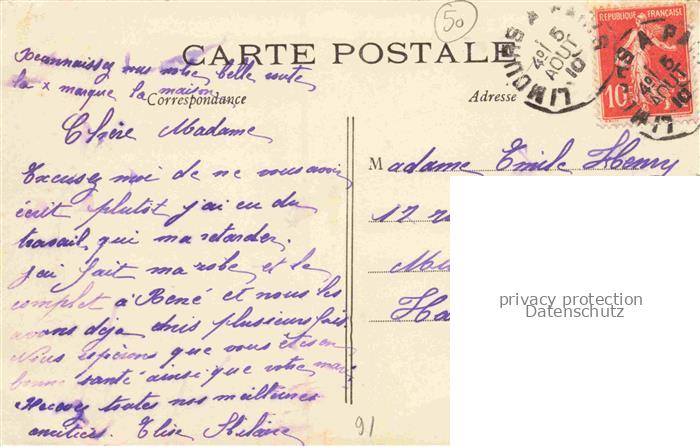 50
CARTE POSTALE
Reconnaissez vous votre belle route
la x marque la maison
Correspondance
Adresse
LIMOURS A PARIS
4º/ 5
AOUT
10
REPUBLIQUE FRANÇAISE
10
Chère Madame
Excusez moi de ne vous avoir
écrit plutôt j'ai eu du
travail qui ma retarder.
j'ai fait ma robe et le
complet à René et nous les
avons déja mis plusieurs fois.
Nous espérons que vous êtes en
bonne santé ainsi que votre mari
Recevez toutes nos meilleures
amitiés. Elise Hilaire
Madame Emile Henry
12
Ha
privacy protection
Datenschutz
91